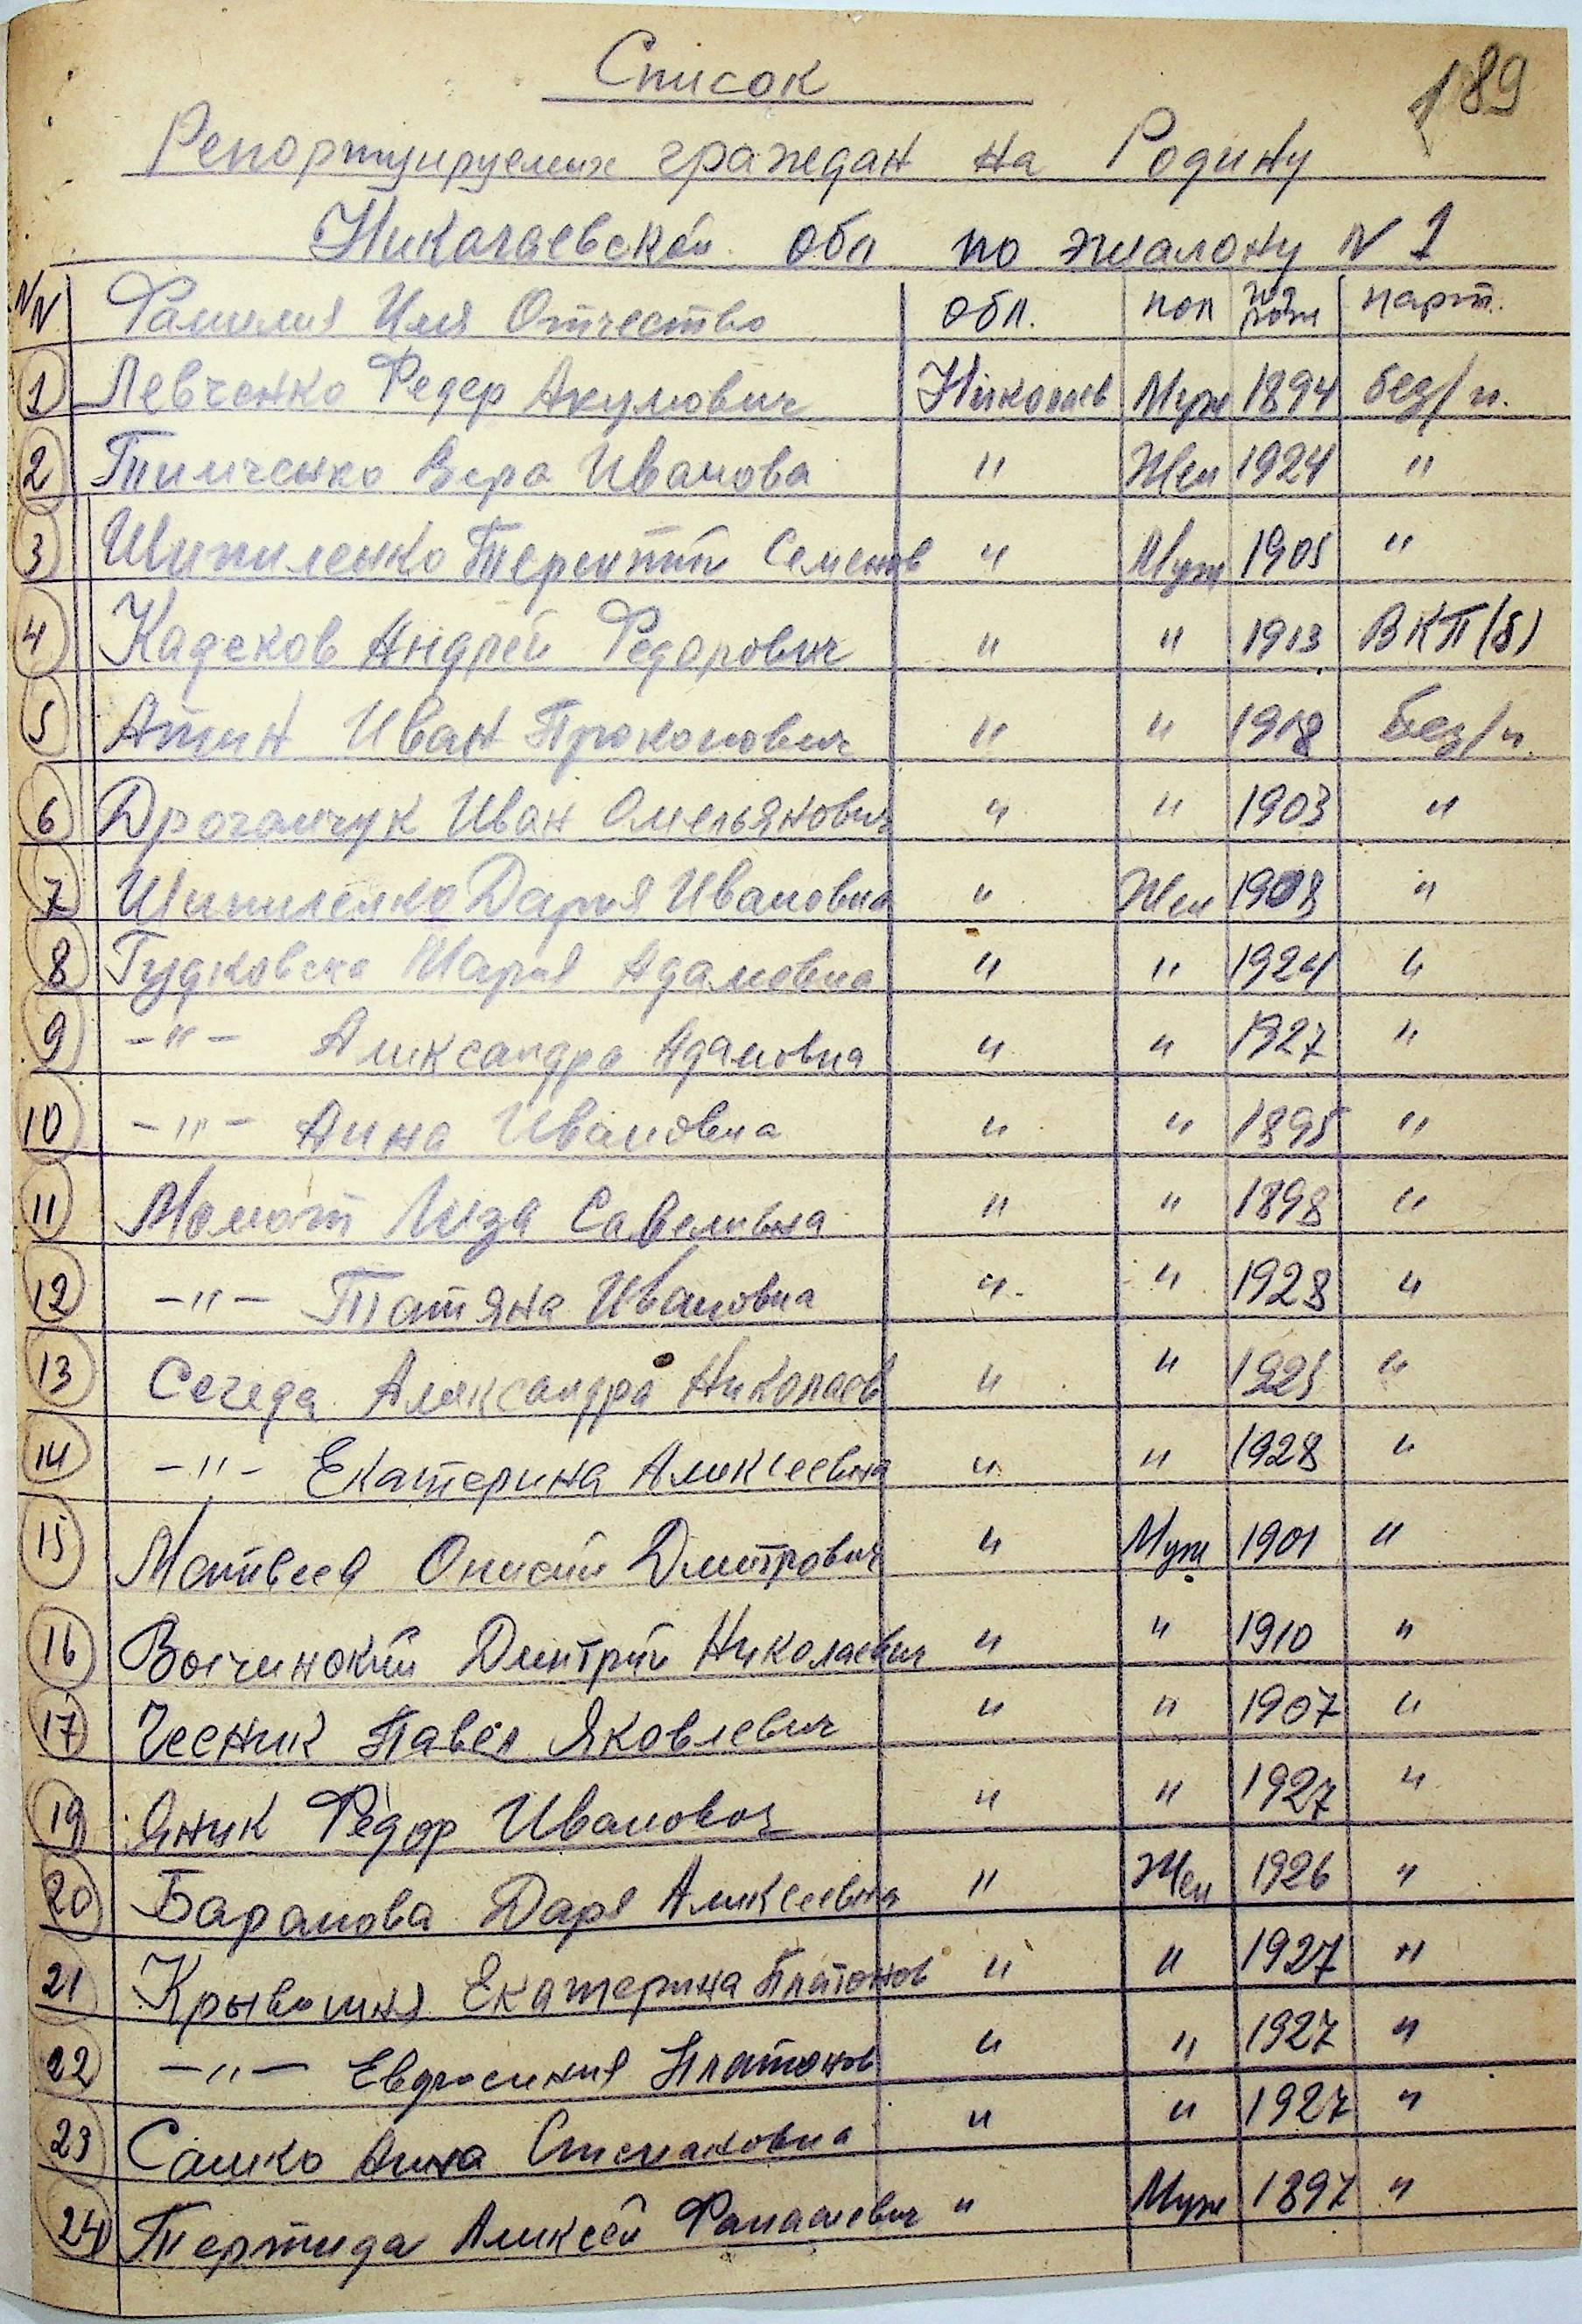 189
Список
Репортуируемих граждан на Родину
Николаевской обл по эшалону N 1
NN Фамилия Имя Отчество обл. пол год рожд парт.
1 Левченко Федер Акумович Николаев Муж 1894 без/п.
2 Тимченко Вера Иванова " Жен 1924 "
3 Шипиленко Терентий Семенов " Муж 1905 "
4 Кадеков Андрей Федорович " " 1913 ВКП(б)
5 Апин Иван Прокопович " " 1918 без/п.
6 Дроганчук Иван Омельянович " " 1903 "
7 Шипиленко Дарья Ивановна " Жен 1908 "
8 Гудковска Мария Адамовна " " 1924 "
9 -"- Александра Адамовна " " 1927 "
10 -"- Анна Ивановна " " 1895 "
11 Момот Лиза Савельвна " " 1898 "
12 -"- Татяна Ивановна " " 1928 "
13 Сегеда Александра Николаев " " 1925 "
14 -"- Екатерина Алексеевна " " 1928 "
15 Матвеев Онисий Дмитрович " Муж 1901 "
16 Дмитрий Николаевич " " 1910 "
17 Чесник Павел Яковлевич " " 1907 "
19 Яник Федор Иванович " " 1927 "
20 Баранова Даря Алексеевна " Жен 1926 "
21 Крывошия Екатерина Платонов " " 1927 "
22 -"- Евдросиния Платонов " " 1927 "
23 Сашко Анна Степановна " " 1927 "
24 Тертида Алексей Фанасиевич " Муж 1897 "